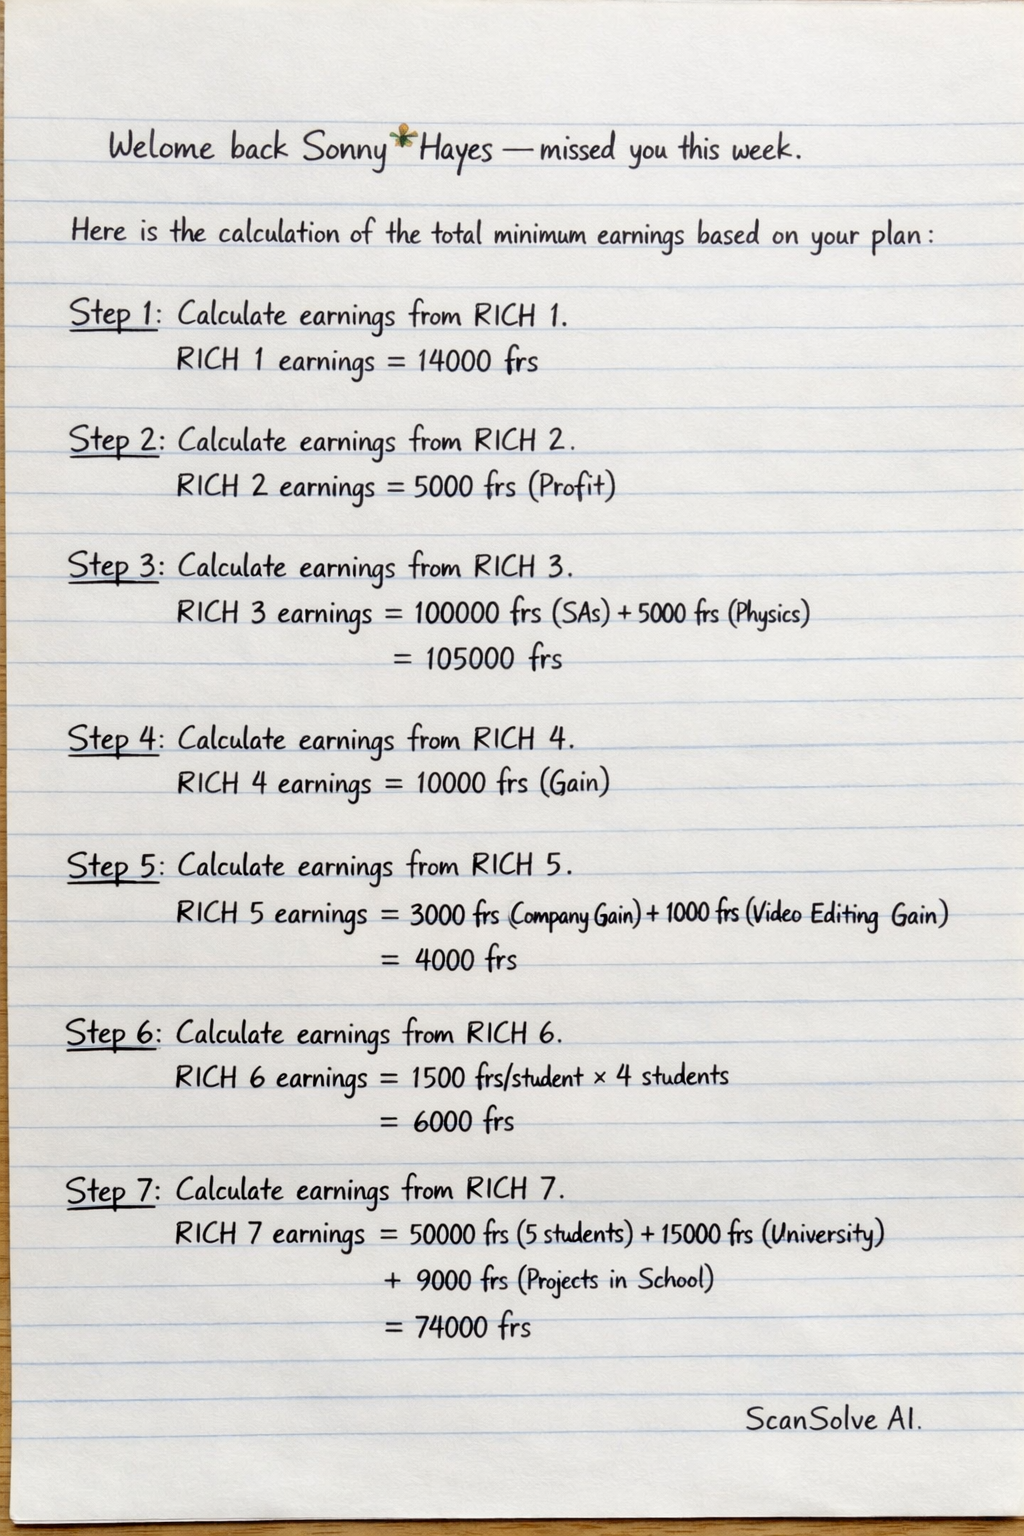 Welome back Sonny Hayes — missed you this week.
Here is the calculation of the total minimum earnings based on your plan:
Step 1: Calculate earnings from RICH 1.
RICH 1 earnings = 14000 frs
Step 2: Calculate earnings from RICH 2.
RICH 2 earnings = 5000 frs (Profit)
Step 3: Calculate earnings from RICH 3.
RICH 3 earnings = 100000 frs (SAs) + 5000 frs (Physics)
= 105000 frs
Step 4: Calculate earnings from RICH 4.
RICH 4 earnings = 10000 frs (Gain)
Step 5: Calculate earnings from RICH 5.
RICH 5 earnings = 3000 frs (Company Gain) + 1000 frs (Video Editing Gain)
= 4000 frs
Step 6: Calculate earnings from RICH 6.
RICH 6 earnings = 1500 frs/student × 4 students
= 6000 frs
Step 7: Calculate earnings from RICH 7.
RICH 7 earnings = 50000 frs (5 students) + 15000 frs (University)
+ 9000 frs (Projects in School)
= 74000 frs
ScanSolve AI.